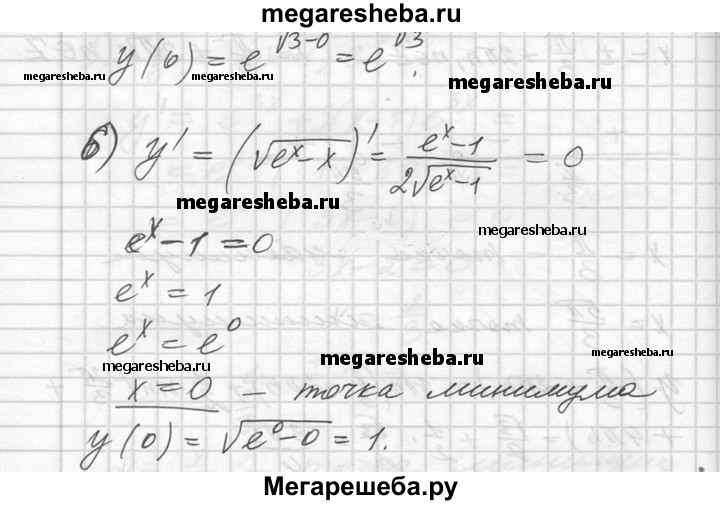 megaresheba.ru
y(0) = e^√3-0 = e^√3.
megaresheba.ru megaresheba.ru megaresheba.ru
б) y' = (√e^x-x)' = e^x-1 / 2√e^x-1 = 0
megaresheba.ru
e^x - 1 = 0
megaresheba.ru
e^x = 1
e^x = e^0
megaresheba.ru megaresheba.ru megaresheba.ru
x = 0 - точка минимума
y(0) = √e^0-0 = 1.
Мегарешеба.ру